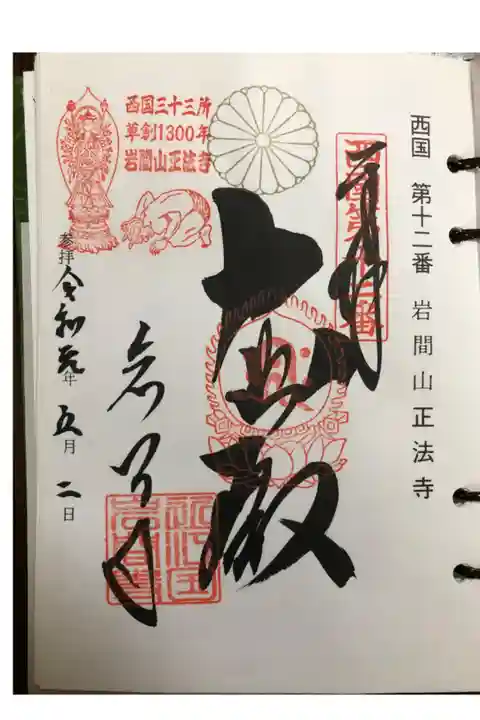 西国 第十二番 岩間山正法寺
西国第十二番
奉拝
大悲殿
岩間寺
西国三十三所
草創1300年
岩間山正法寺
参拝 令和元年 五月 二日